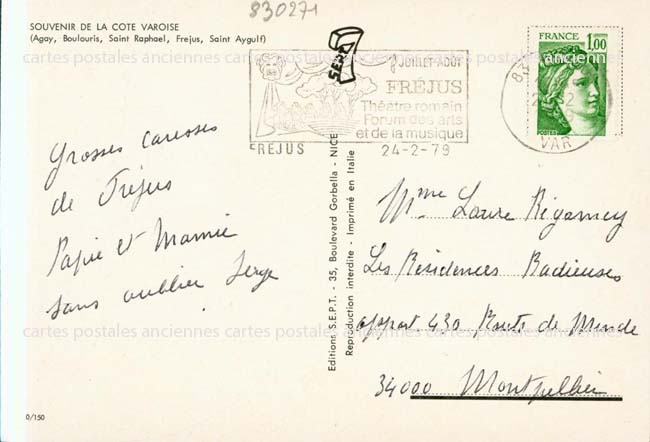 830271
SOUVENIR DE LA COTE VAROISE
(Agay, Boulouris, Saint Raphael, Frejus, Saint Aygulf)
S.E.P.T.
Juillet-Août
FRÉJUS
Théâtre romain
Forum des arts
et de la musique
FREJUS
24-2-79
VAR
FRANCE
1,00
POSTES
cartes postales anciennes cartes postales anciennes cartes postales anciennes
Grosses caresses
de Fréjus
Papie et Mamie
sans oublier Serge
Editions S.E.P.T. - 35, Boulevard Gorbella - NICE
Reproduction interdite - Imprimé en Italie
Mme Laure Régamey
Les Résidences Radieuses
appart 430 Route de Mende
34000 Montpellier
cartes postales anciennes cartes postales anciennes cartes postales anciennes
0/150